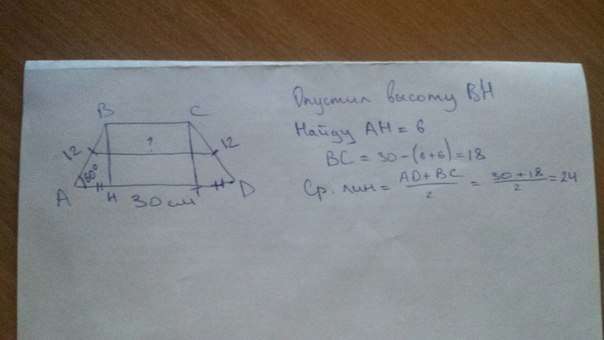 B C
12 ? 12
60°
A H D
30 см
Опустил высоту BH
Найду AH = 6
BC = 30-(6+6)=18
Ср. лин = AD+BC/2 = 30+18/2 = 24